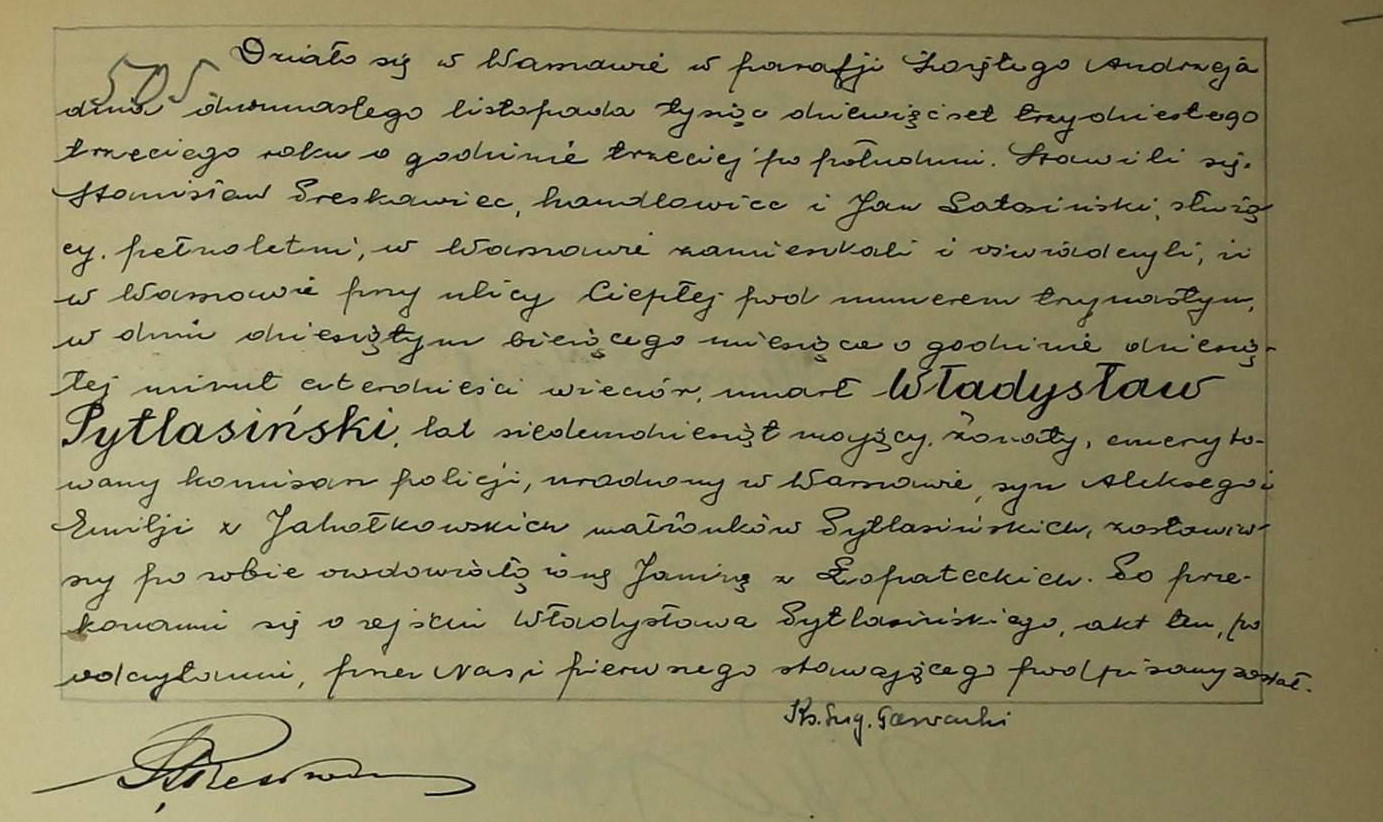 505
Działo się w Warszawie w parafji Świętego Andrzeja
dnia dwunastego listopada tysiąc dziewięćset trzydziestego
trzeciego roku o godzinie trzeciej po południu. Stawili się.
Stanisław Preskawiec, handlowiec i Jan Latosiński, służą-
cy. pełnoletni, w Warszawie zamieszkali i oświadczyli, iż
w Warszawie przy ulicy Ciepłej pod numerem trzynastym,
w dniu dziesiątym bieżącego miesiąca o godzinie dziesią-
tej minut czterdzieści wieczór, umarł Władysław
Pytlasiński, lat siedemdziesiąt mający, żonaty, emeryto-
wany komisarz policji, urodzony w Warszawie, syn Aleksego i
Emilji z Jahołkowskich małżonków Pytlasińskich, zostawiw-
szy po sobie owdowiałą żonę Janinę z Łopateckich. Po prze-
konaniu się o zejściu Władysława Pytlasińskiego, akt ten, po
odczytaniu, przez Nas i pierwszego stawającego podpisany został.
Ks.